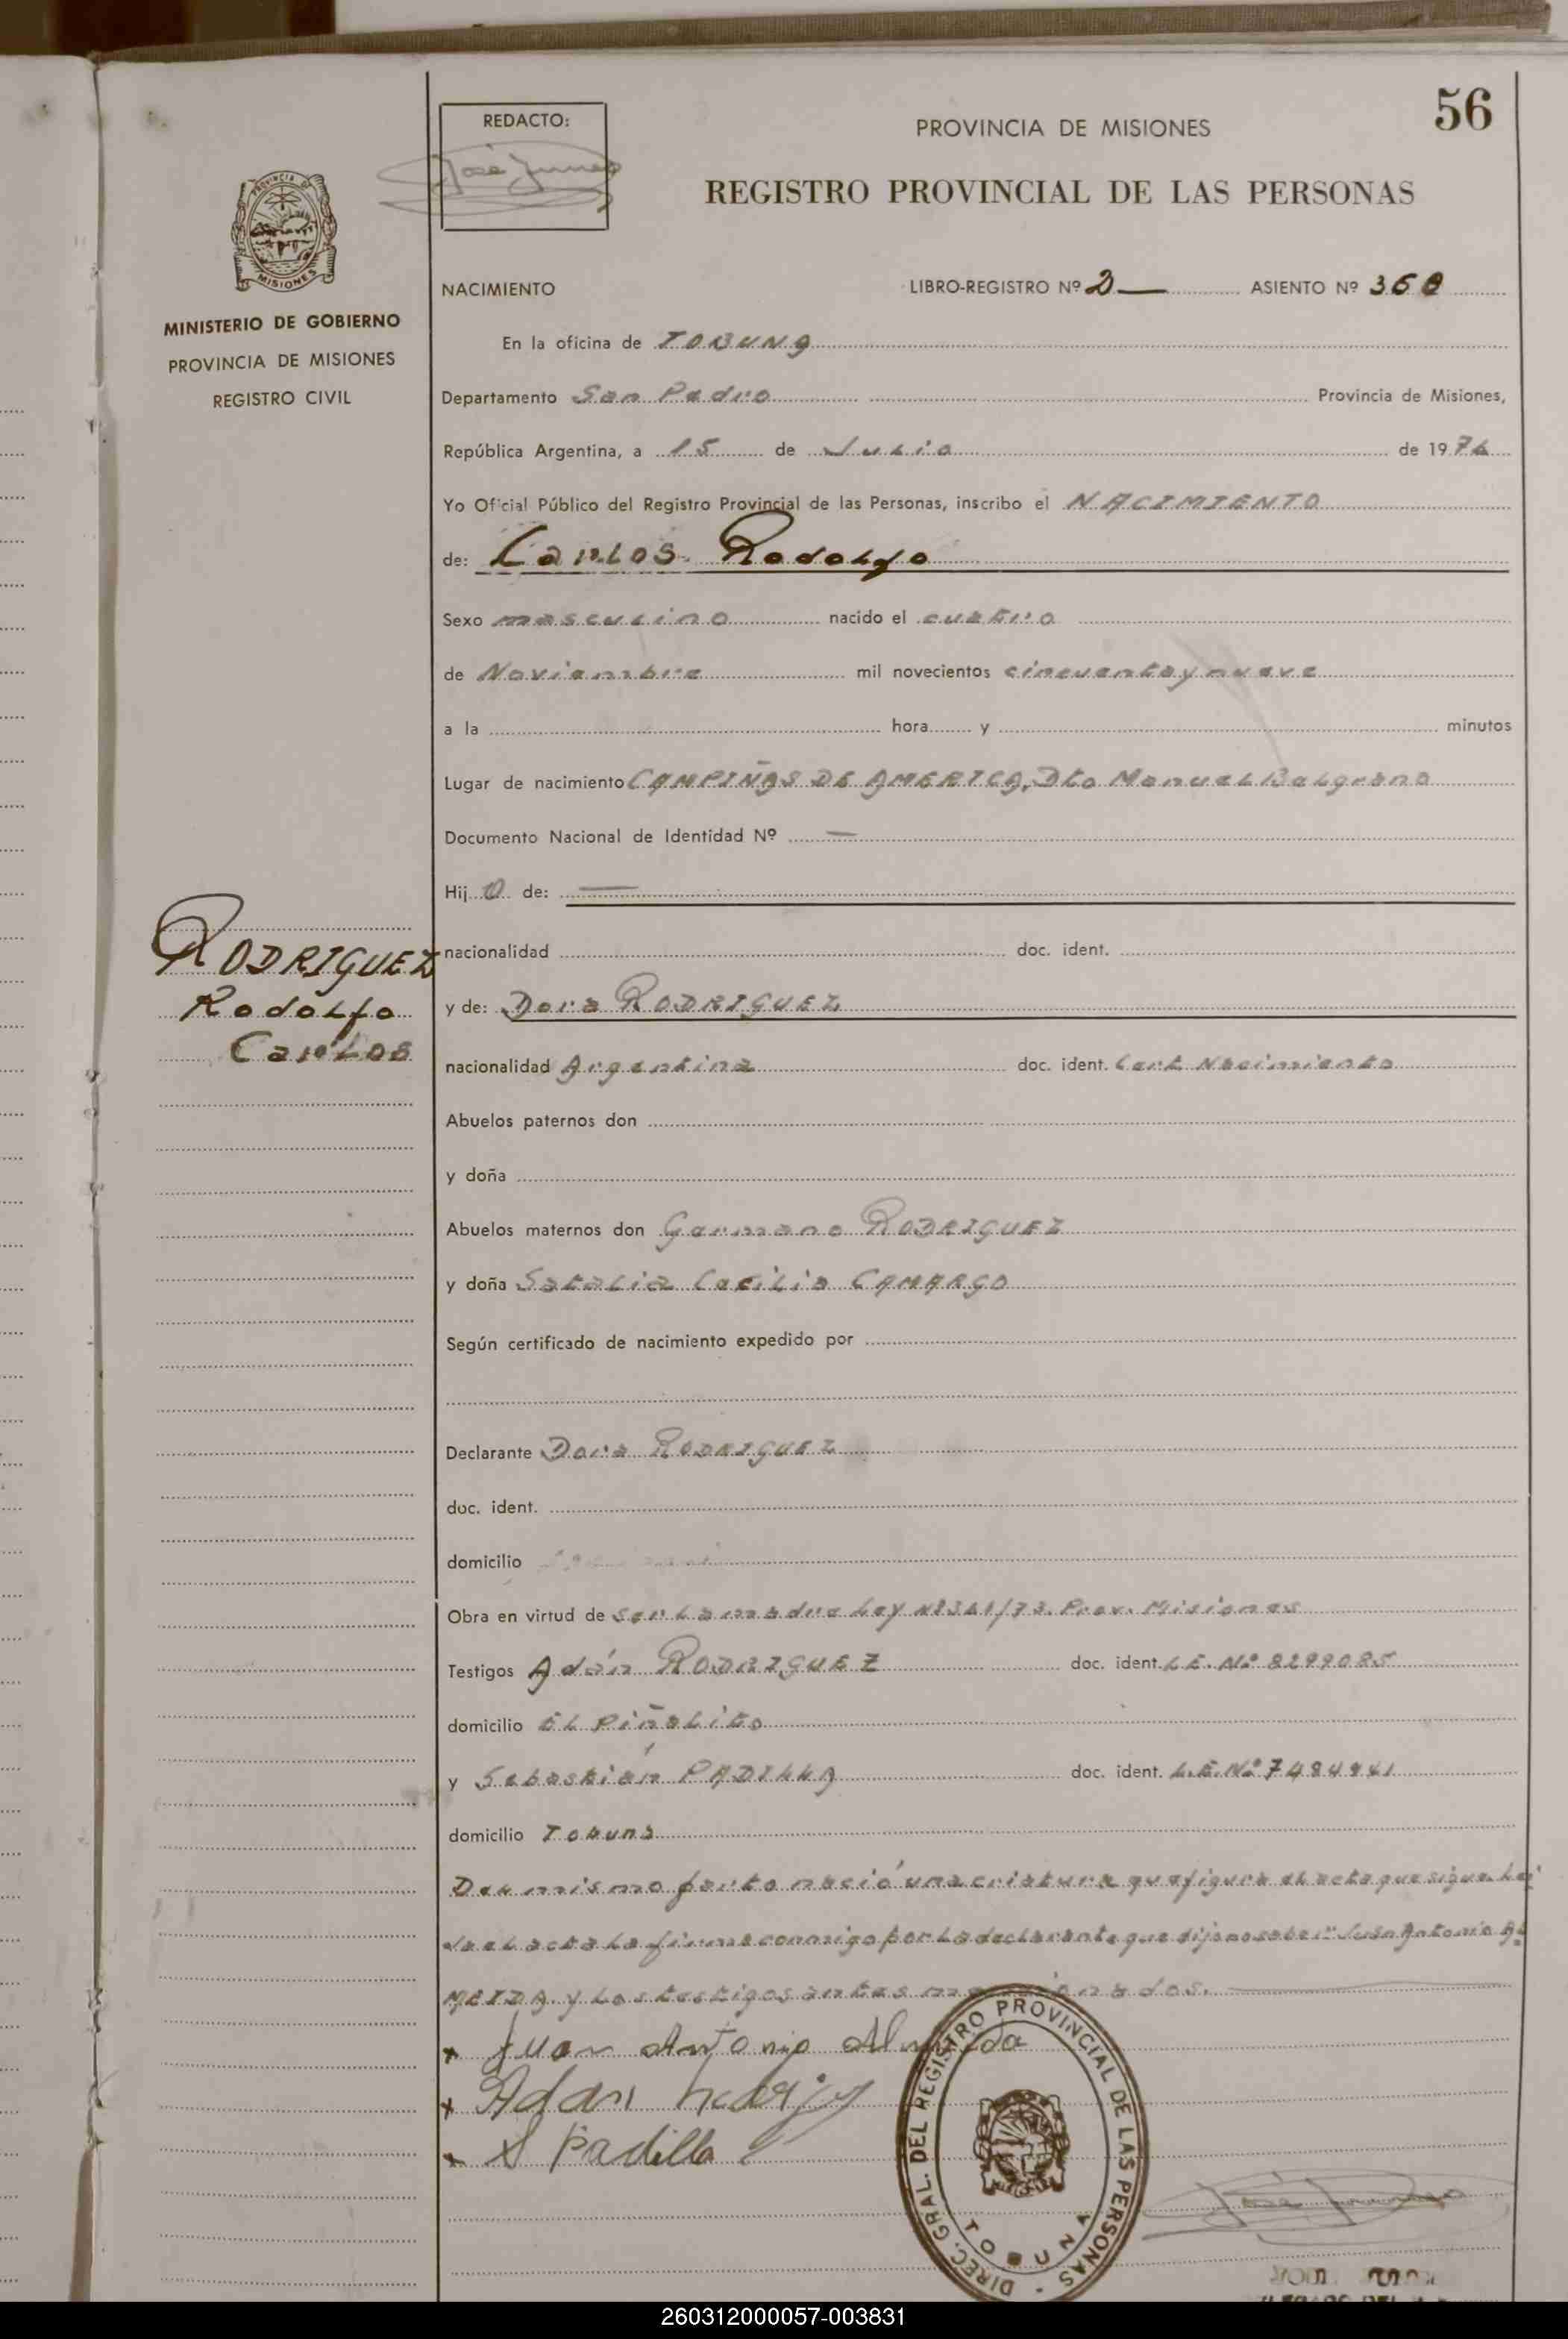 56
REDACTO:
PROVINCIA DE MISIONES
REGISTRO PROVINCIAL DE LAS PERSONAS
PROVINCIA DE
MISIONES
MINISTERIO DE GOBIERNO
PROVINCIA DE MISIONES
REGISTRO CIVIL
NACIMIENTO LIBRO-REGISTRO Nº 2 — ASIENTO Nº 360
En la oficina de TOBUNA
Departamento San Pedro Provincia de Misiones,
República Argentina, a 15 de Julio de 1976
Yo Oficial Público del Registro Provincial de las Personas, inscribo el NACIMIENTO
de: Carlos Rodolfo
Sexo masculino nacido el cuatro
de Noviembre mil novecientos cincuenta y nueve
a la hora y minutos
Lugar de nacimiento CAMPIÑAS DE AMERICA, Dto Manuel Belgrano
Documento Nacional de Identidad Nº —
Hijo de: —
RODRIGUEZ
Rodolfo
Carlos
nacionalidad doc. ident.
y de: Dora RODRIGUEZ
nacionalidad Argentina doc. ident. Cert Nacimiento
Abuelos paternos don
y doña
Abuelos maternos don Germano RODRIGUEZ
y doña Satalia Cecilia CAMARGO
Según certificado de nacimiento expedido por
Declarante Dora RODRIGUEZ
doc. ident.
domicilio
Obra en virtud de ser la madre Ley Nº 361/73. Prov. Misiones
Testigos Adán RODRIGUEZ doc. ident. L.E. Nº 8299085
domicilio EL Piñalito
y Sebastián PADILLA doc. ident. L.E. Nº 7484941
domicilio Tobuna
Del mismo parto nació una criatura que figura el acta que sigue. Leí
da el acta la firma conmigo por la declarante que dijo no saber Juan Antonio AL
MEIDA y los testigos antes mencionados.
x Juan Antonio Almeida
x Adan
x S Padilla
DIREC. GRAL. DEL REGISTRO PROVINCIAL DE LAS PERSONAS
TOBUNA
260312000057-003831